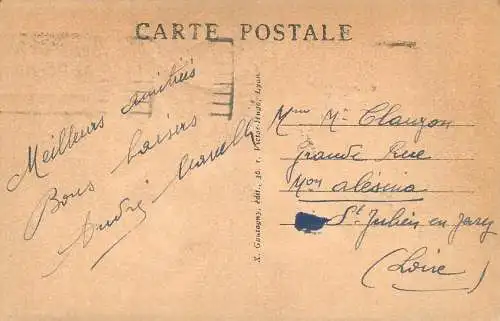 CARTE POSTALE
Meilleurs amitiés
Bons baisers
André
X. Goutagny, édit., 36, r. Victor-Hugo, Lyon.
Mme M. Clauzon
Grande Rue
Mon alésina
St Julien en Jarez
(Loire)